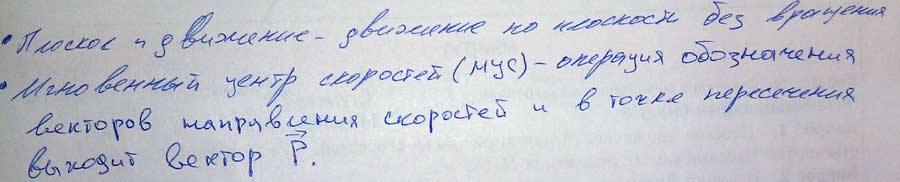 • Плоское движение - движение по плоскости без вращения
• Мгновенный центр скоростей (МЦС) - операция обозначения
векторов направления скоростей и в точке пересечения
выходит вектор P⃗.